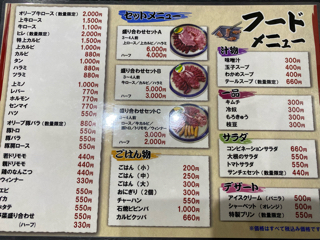 オリーブ牛ロース(数量限定) 2,000円
上牛ロース 1,500円
牛ロース 1,100円
ヒレ(数量限定) 2,000円
特上カルビ 1,500円
上カルビ 1,100円
カルビ 880円
タン 1,000円
ハラミ 880円
ツラミ 880円
上ミノ 880円
レバー 770円
ホルモン 770円
センマイ 770円
ハツ 550円
オリーブ豚バラ(数量限定) 880円
豚トロ 550円
豚バラ 550円
豚肩ロース 550円
若ドリモモ 440円
親ドリモモ 550円
鶏のなんこつ 440円
ウィンナー 330円
エビ 550円
イカ 550円
ホタテ 550円
野菜盛り合わせ 550円
(ハーフ) 330円
セットメニュー
盛り合わせセットA
3~4人前
上ロース/上カルビ/ハラミ
6,000円
ハーフ 4,000円
盛り合わせセットB
3~4人前
5,000円
ハーフ 3,000円
盛り合わせセットC
3~4人前
4,000円
ハーフ 2,000円
ごはん物
ごはん(小) 200円
ごはん(中) 250円
ごはん(大) 300円
おにぎり(2個) 300円
チャーハン 550円
石焼ビビンバ 880円
カルビクッパ 660円
フード
メニュー
汁物
味噌汁 300円
玉子スープ 400円
わかめスープ 400円
テールスープ(数量限定) 660円
一品
キムチ 300円
冷奴 300円
もろきゅう 300円
枝豆 300円
サラダ
コンビネーションサラダ 660円
大根のサラダ 550円
トマトサラダ 550円
サンチェセット(数量限定) 440円
デザート
アイスクリーム(バニラ) 500円
シャーベット(オレンジ) 500円
特製プリン(数量限定) 550円
※価格はすべて税込み価格です。